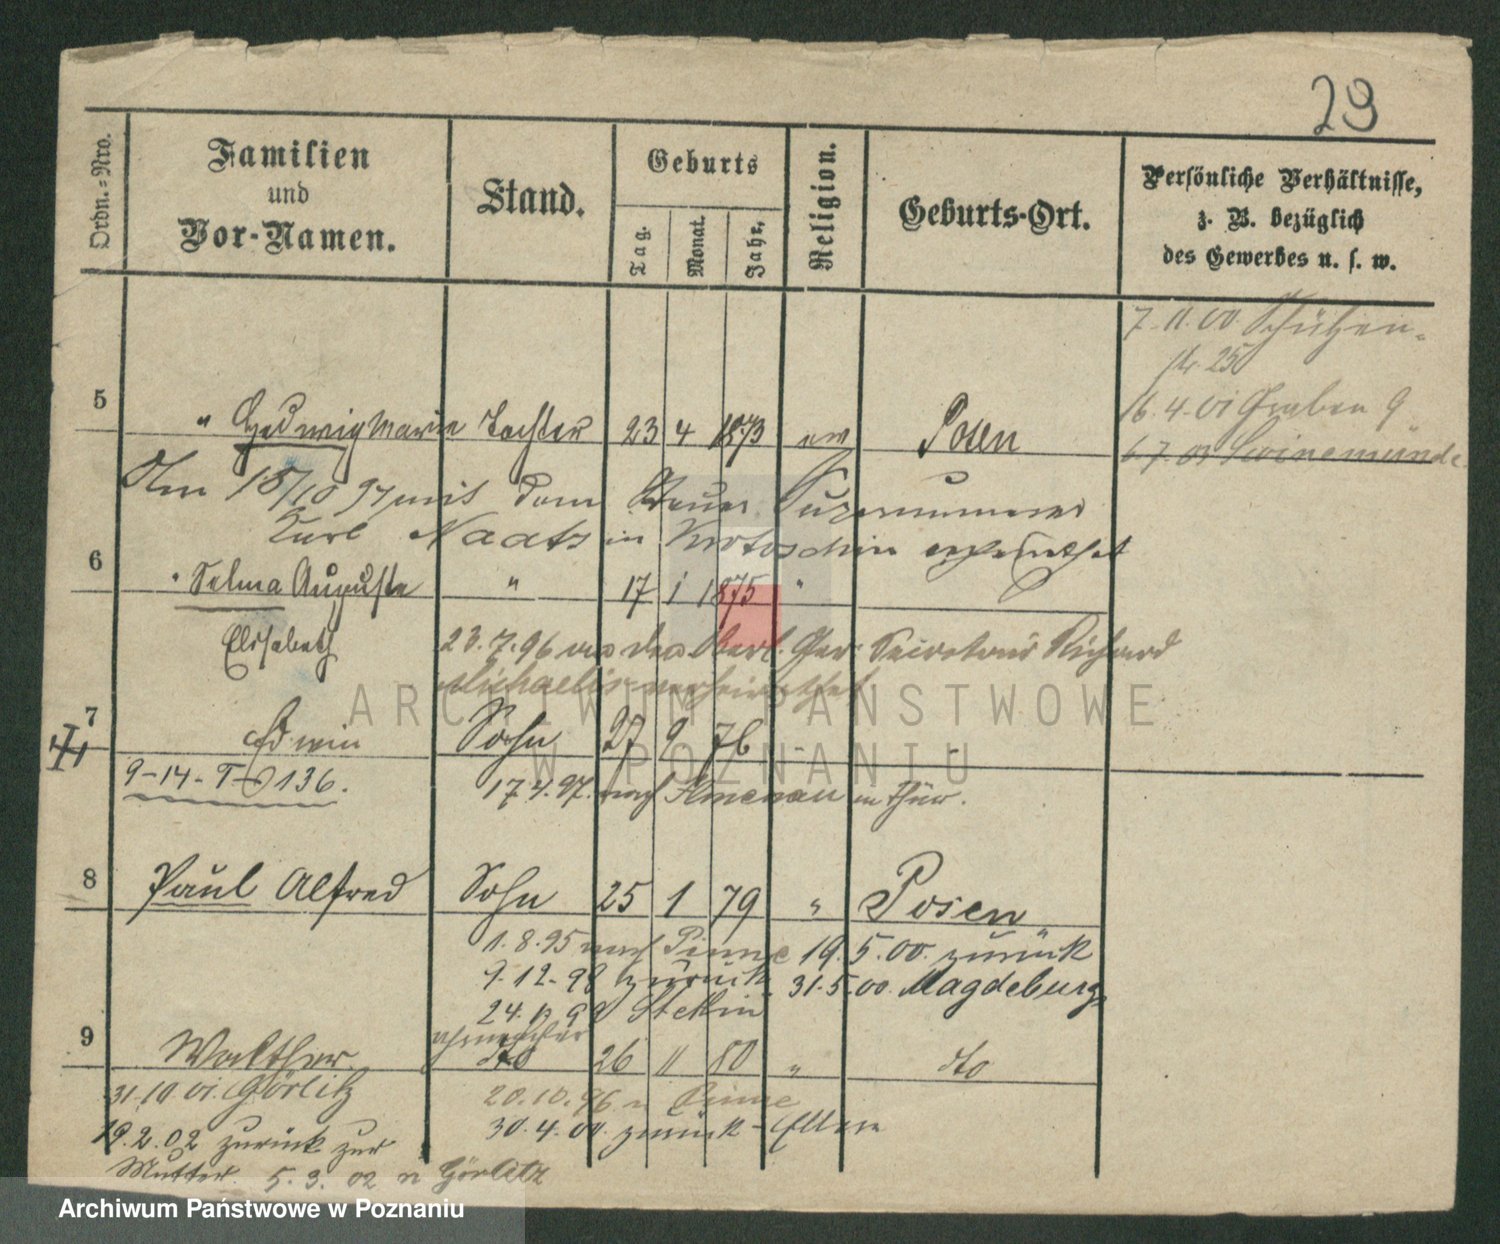 29
Ordn.=Nro.
Familien
und
Vor-Namen.
Stand.
Geburts
Tag.
Monat.
Jahr.
Religion.
Geburts-Ort.
Persönliche Verhältnisse,
z. B. bezüglich
des Gewerbes u. s. w.
7. 11. 00. Schützen-
str. 25
16. 4. 01 Graben 9
6. 7. 03 Swinemünde
5 " Hedwig Marie Tochter 23 4 1873 ev Posen
Am 18/10 97 mit dem
Karl Naatz in Krotoschin verheirathet
6 " Selma Auguste " 17 1 1875 "
Elisabeth
23. 7. 96 an den Oberl. Ger. Secretair Richard
Michaelis verheirathet
7 Edwin Sohn 27 9 76 - -
9-14-T-O 136.
17 4. 97. nach Ilmenau in Thür.
8 Paul Alfred Sohn 25 1 79 " Posen
1. 8. 95 nach Pinne 19. 5. 00. zurück
9. 12. 98 zurück 31. 5. 00. Magdeburg
24. 12 98 Stettin
9 Walther Uhrmacher
dto 26 11 80 " dto
31. 10 01. Görlitz
20. 10. 96 n Pinne
19. 2. 02 zurück zur
30. 4. 00. zurück - Eltern
Mutter. 5. 3. 02 n Görlitz
ARCHIWUM PAŃSTWOWE
W POZNANIU
Archiwum Państwowe w Poznaniu